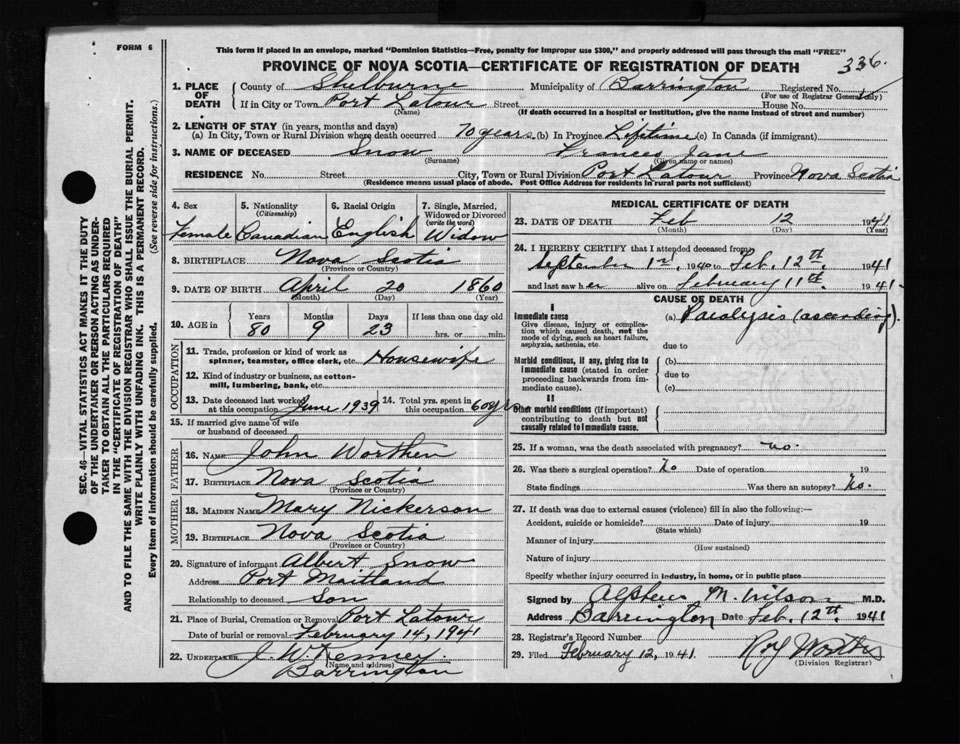 FORM 6
This form if placed in an envelope, marked "Dominion Statistics—Free, penalty for improper use $300," and properly addressed will pass through the mail "FREE"
PROVINCE OF NOVA SCOTIA—CERTIFICATE OF REGISTRATION OF DEATH
336.
1. PLACE OF DEATH County of Shelburne Municipality of Barrington Registered No.
(For use of Registrar General only)
If in City or Town Port Latour Street House No.
(Name) (If death occurred in a hospital or institution, give the name instead of street and number)
2. LENGTH OF STAY (in years, months and days)
(a) In City, Town or Rural Division where death occurred 70 years (b) In Province Lifetime (c) In Canada (if immigrant)
3. NAME OF DECEASED Snow Frances Jane
(Surname) (Given name or names)
RESIDENCE No. Street City, Town or Rural Division Port Latour Province Nova Scotia
(Residence means usual place of abode. Post Office Address for residents in rural parts not sufficient)
4. Sex Female
5. Nationality (Citizenship) Canadian
6. Racial Origin English
7. Single, Married, Widowed or Divorced (write the word) Widow
8. BIRTHPLACE Nova Scotia
(Province or Country)
9. DATE OF BIRTH April 20 1860
(Month) (Day) (Year)
10. AGE in Years Months Days If less than one day old
80 9 23 hrs. or min.
OCCUPATION
11. Trade, profession or kind of work as spinner, teamster, office clerk, etc. Housewife
12. Kind of industry or business, as cotton-mill, lumbering, bank, etc.
13. Date deceased last worked at this occupation June 1939 14. Total yrs. spent in this occupation 60 yrs
15. If married give name of wife or husband of deceased
FATHER
16. NAME John Worthen
17. BIRTHPLACE Nova Scotia
(Province or Country)
MOTHER
18. MAIDEN NAME Mary Nickerson
19. BIRTHPLACE Nova Scotia
(Province or Country)
20. Signature of informant Albert Snow
Address Port Maitland
Relationship to deceased Son
21. Place of Burial, Cremation or Removal Port Latour
Date of burial or removal February 14, 1941
22. UNDERTAKER J. W. Kenney.
(Name and address)
Barrington
MEDICAL CERTIFICATE OF DEATH
23. DATE OF DEATH Feb 12 1941
(Month) (Day) (Year)
24. I HEREBY CERTIFY that I attended deceased from
September 1st, 1940 to Feb. 12th. 1941
and last saw her alive on February 11th. 1941
CAUSE OF DEATH
I
Immediate cause (a) Paralysis (ascending).
Give disease, injury or complication which caused death, not the mode of dying, such as heart failure, asphyxia, asthenia, etc.
due to
Morbid conditions, if any, giving rise to immediate cause (stated in order proceeding backwards from immediate cause).
(b)
due to
(c)
II
Other morbid conditions (if important) contributing to death but not causally related to immediate cause.
25. If a woman, was the death associated with pregnancy? no.
26. Was there a surgical operation? No Date of operation 19
State findings Was there an autopsy? No.
27. If death was due to external causes (violence) fill in also the following:—
Accident, suicide or homicide? Date of injury 19
(State which)
Manner of injury
(How sustained)
Nature of injury
Specify whether injury occurred in industry, in home, or in public place
Signed by Alpheus M. Wilson M.D.
Address Barrington Date Feb. 12th. 1941
28. Registrar's Record Number
29. Filed February 12, 1941. Roy
(Division Registrar)
SEC. 46—VITAL STATISTICS ACT MAKES IT THE DUTY
OF THE UNDERTAKER OR PERSON ACTING AS UNDER-
TAKER TO OBTAIN ALL THE PARTICULARS REQUIRED
IN THE "CERTIFICATE OF REGISTRATION OF DEATH"
AND TO FILE THE SAME WITH THE DIVISION REGISTRAR WHO SHALL ISSUE THE BURIAL PERMIT.
WRITE PLAINLY WITH UNFADING INK. THIS IS A PERMANENT RECORD.
Every item of information should be carefully supplied. (See reverse side for instructions.)